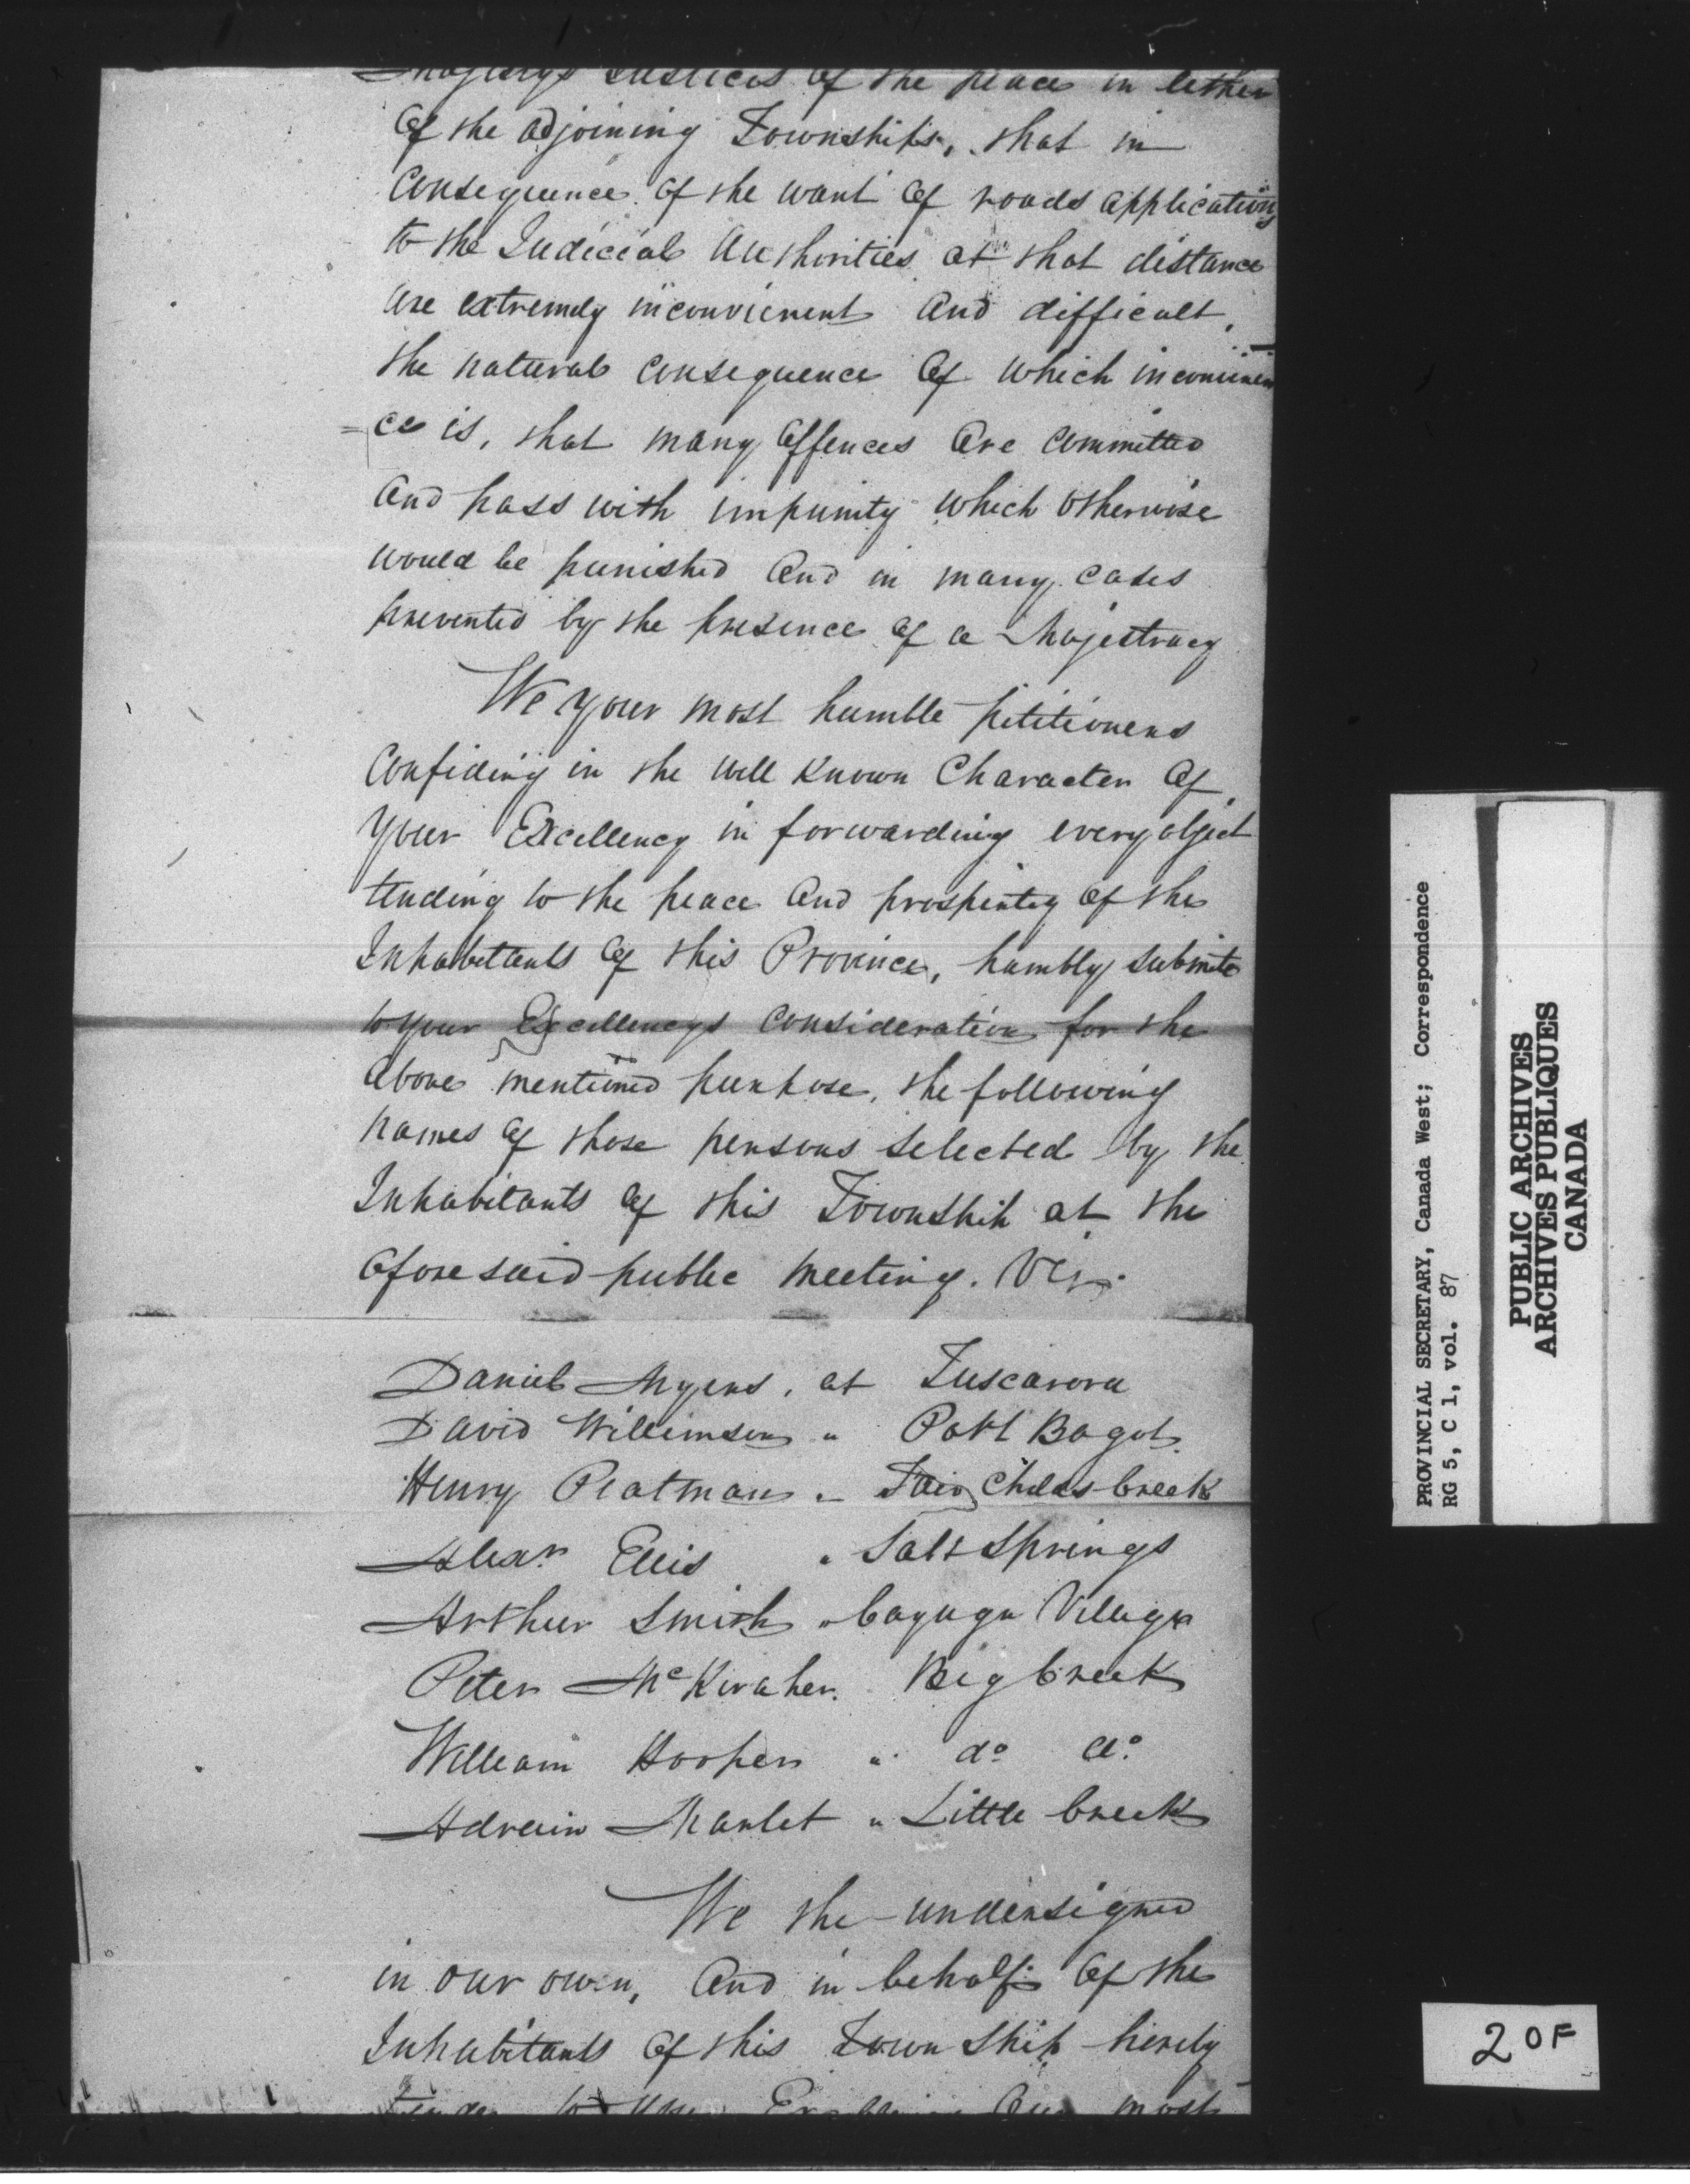 Majestys Justices of the peace in either
Of the adjoining Townships, that in
Consequence of the want of roads applications
to the Judicial Authorities at that distance
are extremely inconvienent And difficult,
the natural consequence of which inconvinien
=ce is, that many Offences Are Committed
And pass with impunity which otherwise
would be punished And in many cases
prevented by the presence of a Majestracy
We your most humble petitioners
Confiding in the well known Character of
Your Excellency in forwarding every object
tending to the peace And prosperity of the
Inhabittants of this Province, humbly submite
to your Excellencys Consideration for the
above mentioned purpose, the following
names of those persons selected by the
Inhabitants of this Township at the
Aforesaid public meeting. Viz.
Daniel Myers, at Tuscarora
David Willimson " Port Bagot
Henry Peatman " Fair Childs Creek
Alexr Ellis " Salt Springs
Arthur Smith " Cayuga Village
Peter Mc Big Creek
William Hooper " do do
Adrain Marlet " Little Creek
We the undersigned
in our own, And in behalf of the
Inhabitants of this Town Ship hereby
to your Our most
PROVINCIAL SECRETARY, Canada West; Correspondence
RG 5, C 1, vol. 87
PUBLIC ARCHIVES
ARCHIVES PUBLIQUES
CANADA
2 OF